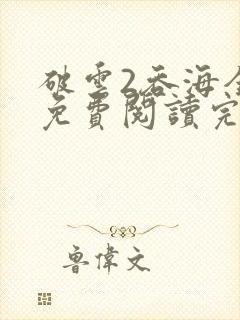 破雲2吞海全
免費閱讀完
魯偉文